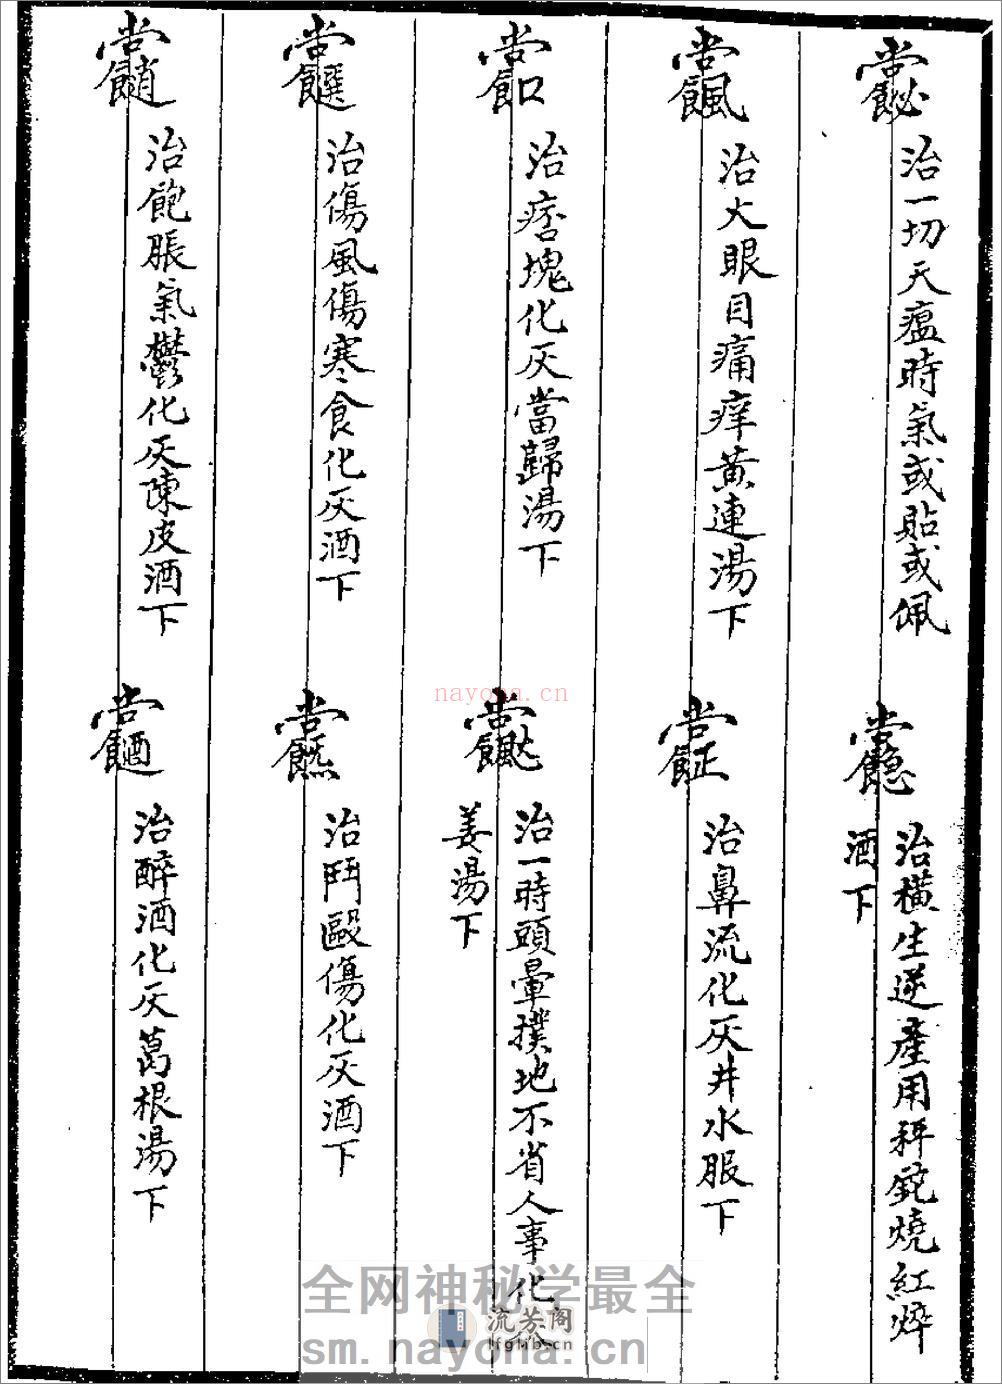 治一切天瘟時氣或貼或佩
治橫生逆產用秤鉈燒紅焠
酒下
治火眼目痛痒黃連湯下
治鼻流化灰井水服下
治痞塊化灰當歸湯下
治一時頭暈撲地不省人事化
姜湯下
治傷風傷寒食化灰酒下
治鬥毆傷化灰酒下
治飽脹氣鬱化灰陳皮酒下
治醉酒化灰葛根湯下
nayona.cn
全网神秘学最全
流芳阁
lfglib.cn
sm.nayona.cn